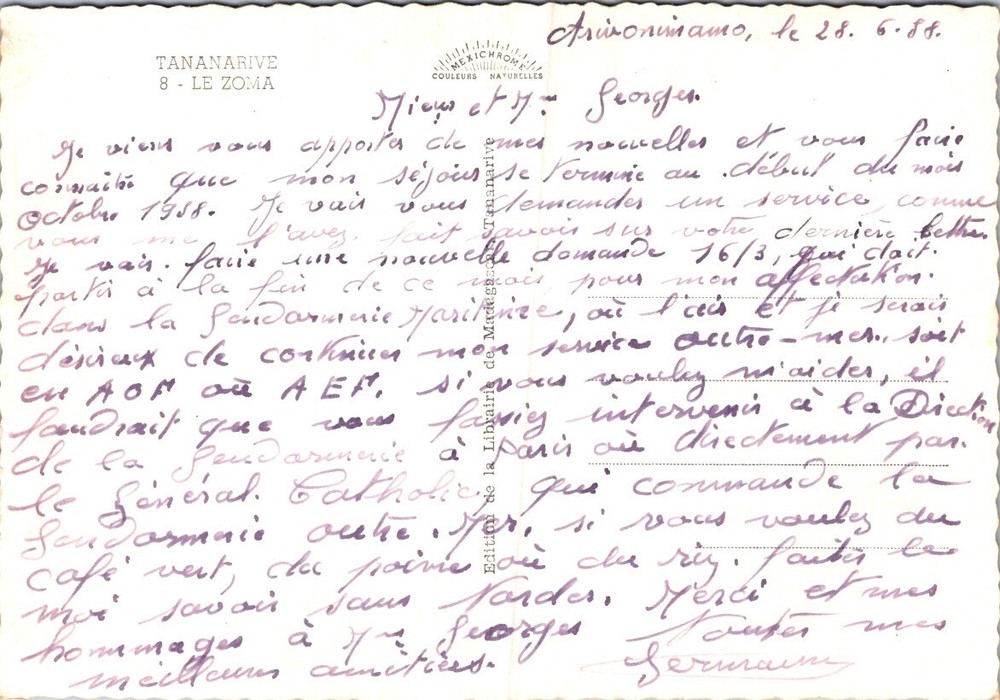 TANANARIVE
8 - LE ZOMA
MEXICHROME
COULEURS NATURELLES
Arivonimamo, le 28. 6. 58.
Mieur et Mme Georges.
Je viens vous apporter de mes nouvelles et vous faire
connaitre que mon séjour se termine au début du mois
octobre 1958. Je vais vous demander un service, comme
vous me l'avez fait savoir sur votre dernière lettre
Je vais faire une nouvelle demande 16/3, qui doit
partir à la fin de ce mois, pour mon affectation
dans la Gendarmerie Maritime, où l'air et je serais
désireux de continuer mon service outre-mer. soit
en AOF ou AEF. si vous voulez m'aider, il
faudrait que vous fassiez intervenir à la Direction
de la Gendarmerie à Paris ou directement par
le Général. Catholic qui commande la
Gendarmerie outre. Mer. si vous voulez du
café vert, du poivre ou du riz. faites le
moi savoir sans tarder. Merci et mes
hommages à Mme Georges Toutes mes
meilleures amitiés.
Germain
Edition de la Librairie de Madagascar Tananarive